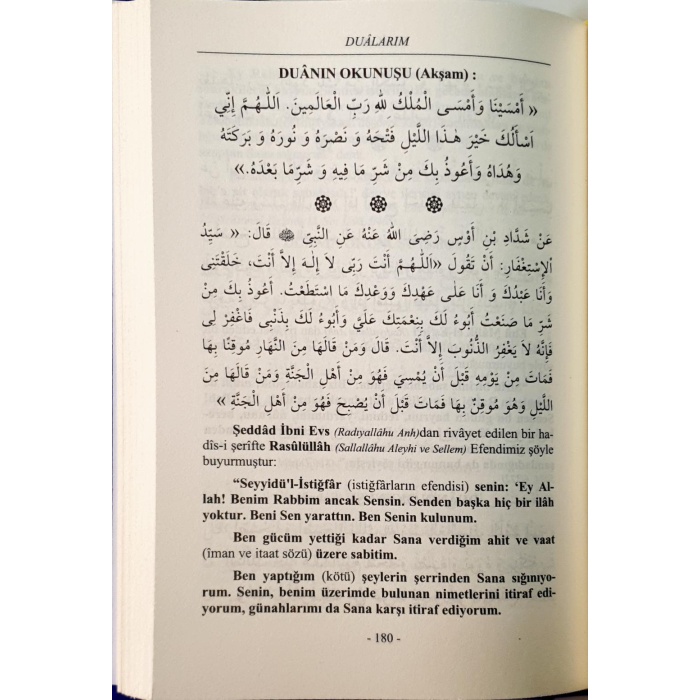 DUÂLARIM
DUÂNIN OKUNUŞU (Akşam) :
« أَمْسَيْنَا وَأَمْسَى الْمُلْكُ لِلّٰهِ رَبِّ الْعَالَمِينَ. اَللّٰهُمَّ إِنِّي
اَسْأَلُكَ خَيْرَ هٰذَا اللَّيْلِ فَتْحَهُ وَ نَصْرَهُ وَ نُورَهُ وَ بَرَكَتَهُ
وَهُدَاهُ وَأَعُوذُ بِكَ مِنْ شَرِّ مَا فِيهِ وَ شَرِّمَا بَعْدَهُ.»
عَنْ شَدَّادِ بْنِ أَوْسٍ رَضِىَ اللّٰهُ عَنْهُ عَنِ النَّبِيِّ ﷺ قَالَ: « سَيِّدُ
اْلإِسْتِغْفَارِ: أَنْ تَقُولَ «اَللّٰهُمَّ أَنْتَ رَبِّى لاَ إِلٰهَ إِلاَّ أَنْتَ، خَلَقْتَنِى
وَأَنَا عَبْدُكَ وَ أَنَا عَلٰى عَهْدِكَ وَوَعْدِكَ مَا اسْتَطَعْتُ. أَعُوذُ بِكَ مِنْ
شَرِّ مَا صَنَعْتُ أَبُوءُ لَكَ بِنِعْمَتِكَ عَلَيَّ وَأَبُوءُ لَكَ بِذَنْبِى فَاغْفِرْ لِى
فَإِنَّهُ لاَ يَغْفِرُ الذُّنُوبَ إِلاَّ أَنْتَ. قَالَ وَمَنْ قَالَهَا مِنَ النَّهَارِ مُوقِنًا بِهَا
فَمَاتَ مِنْ يَوْمِهِ قَبْلَ أَنْ يُمْسِيَ فَهُوَ مِنْ أَهْلِ الْجَنَّةِ وَمَنْ قَالَهَا مِنَ
اللَّيْلِ وَهُوَ مُوقِنٌ بِهَا فَمَاتَ قَبْلَ أَنْ يُصْبِحَ فَهُوَ مِنْ أَهْلِ الْجَنَّةِ »
Şeddâd İbni Evs (Radıyallâhu Anh)dan rivâyet edilen bir ha-
dîs-i şerîfte Rasûlüllâh (Sallallâhu Aleyhi ve Sellem) Efendimiz şöyle
buyurmuştur:
“Seyyidü'l-İstiğfâr (istiğfârların efendisi) senin: ‘Ey Al-
lah! Benim Rabbim ancak Sensin. Senden başka hiç bir ilâh
yoktur. Beni Sen yarattın. Ben Senin kulunum.
Ben gücüm yettiği kadar Sana verdiğim ahit ve vaat
(îman ve itaat sözü) üzere sabitim.
Ben yaptığım (kötü) şeylerin şerrinden Sana sığınıyo-
rum. Senin, benim üzerimde bulunan nimetlerini itiraf edi-
yorum, günahlarımı da Sana karşı itiraf ediyorum.
- 180 -